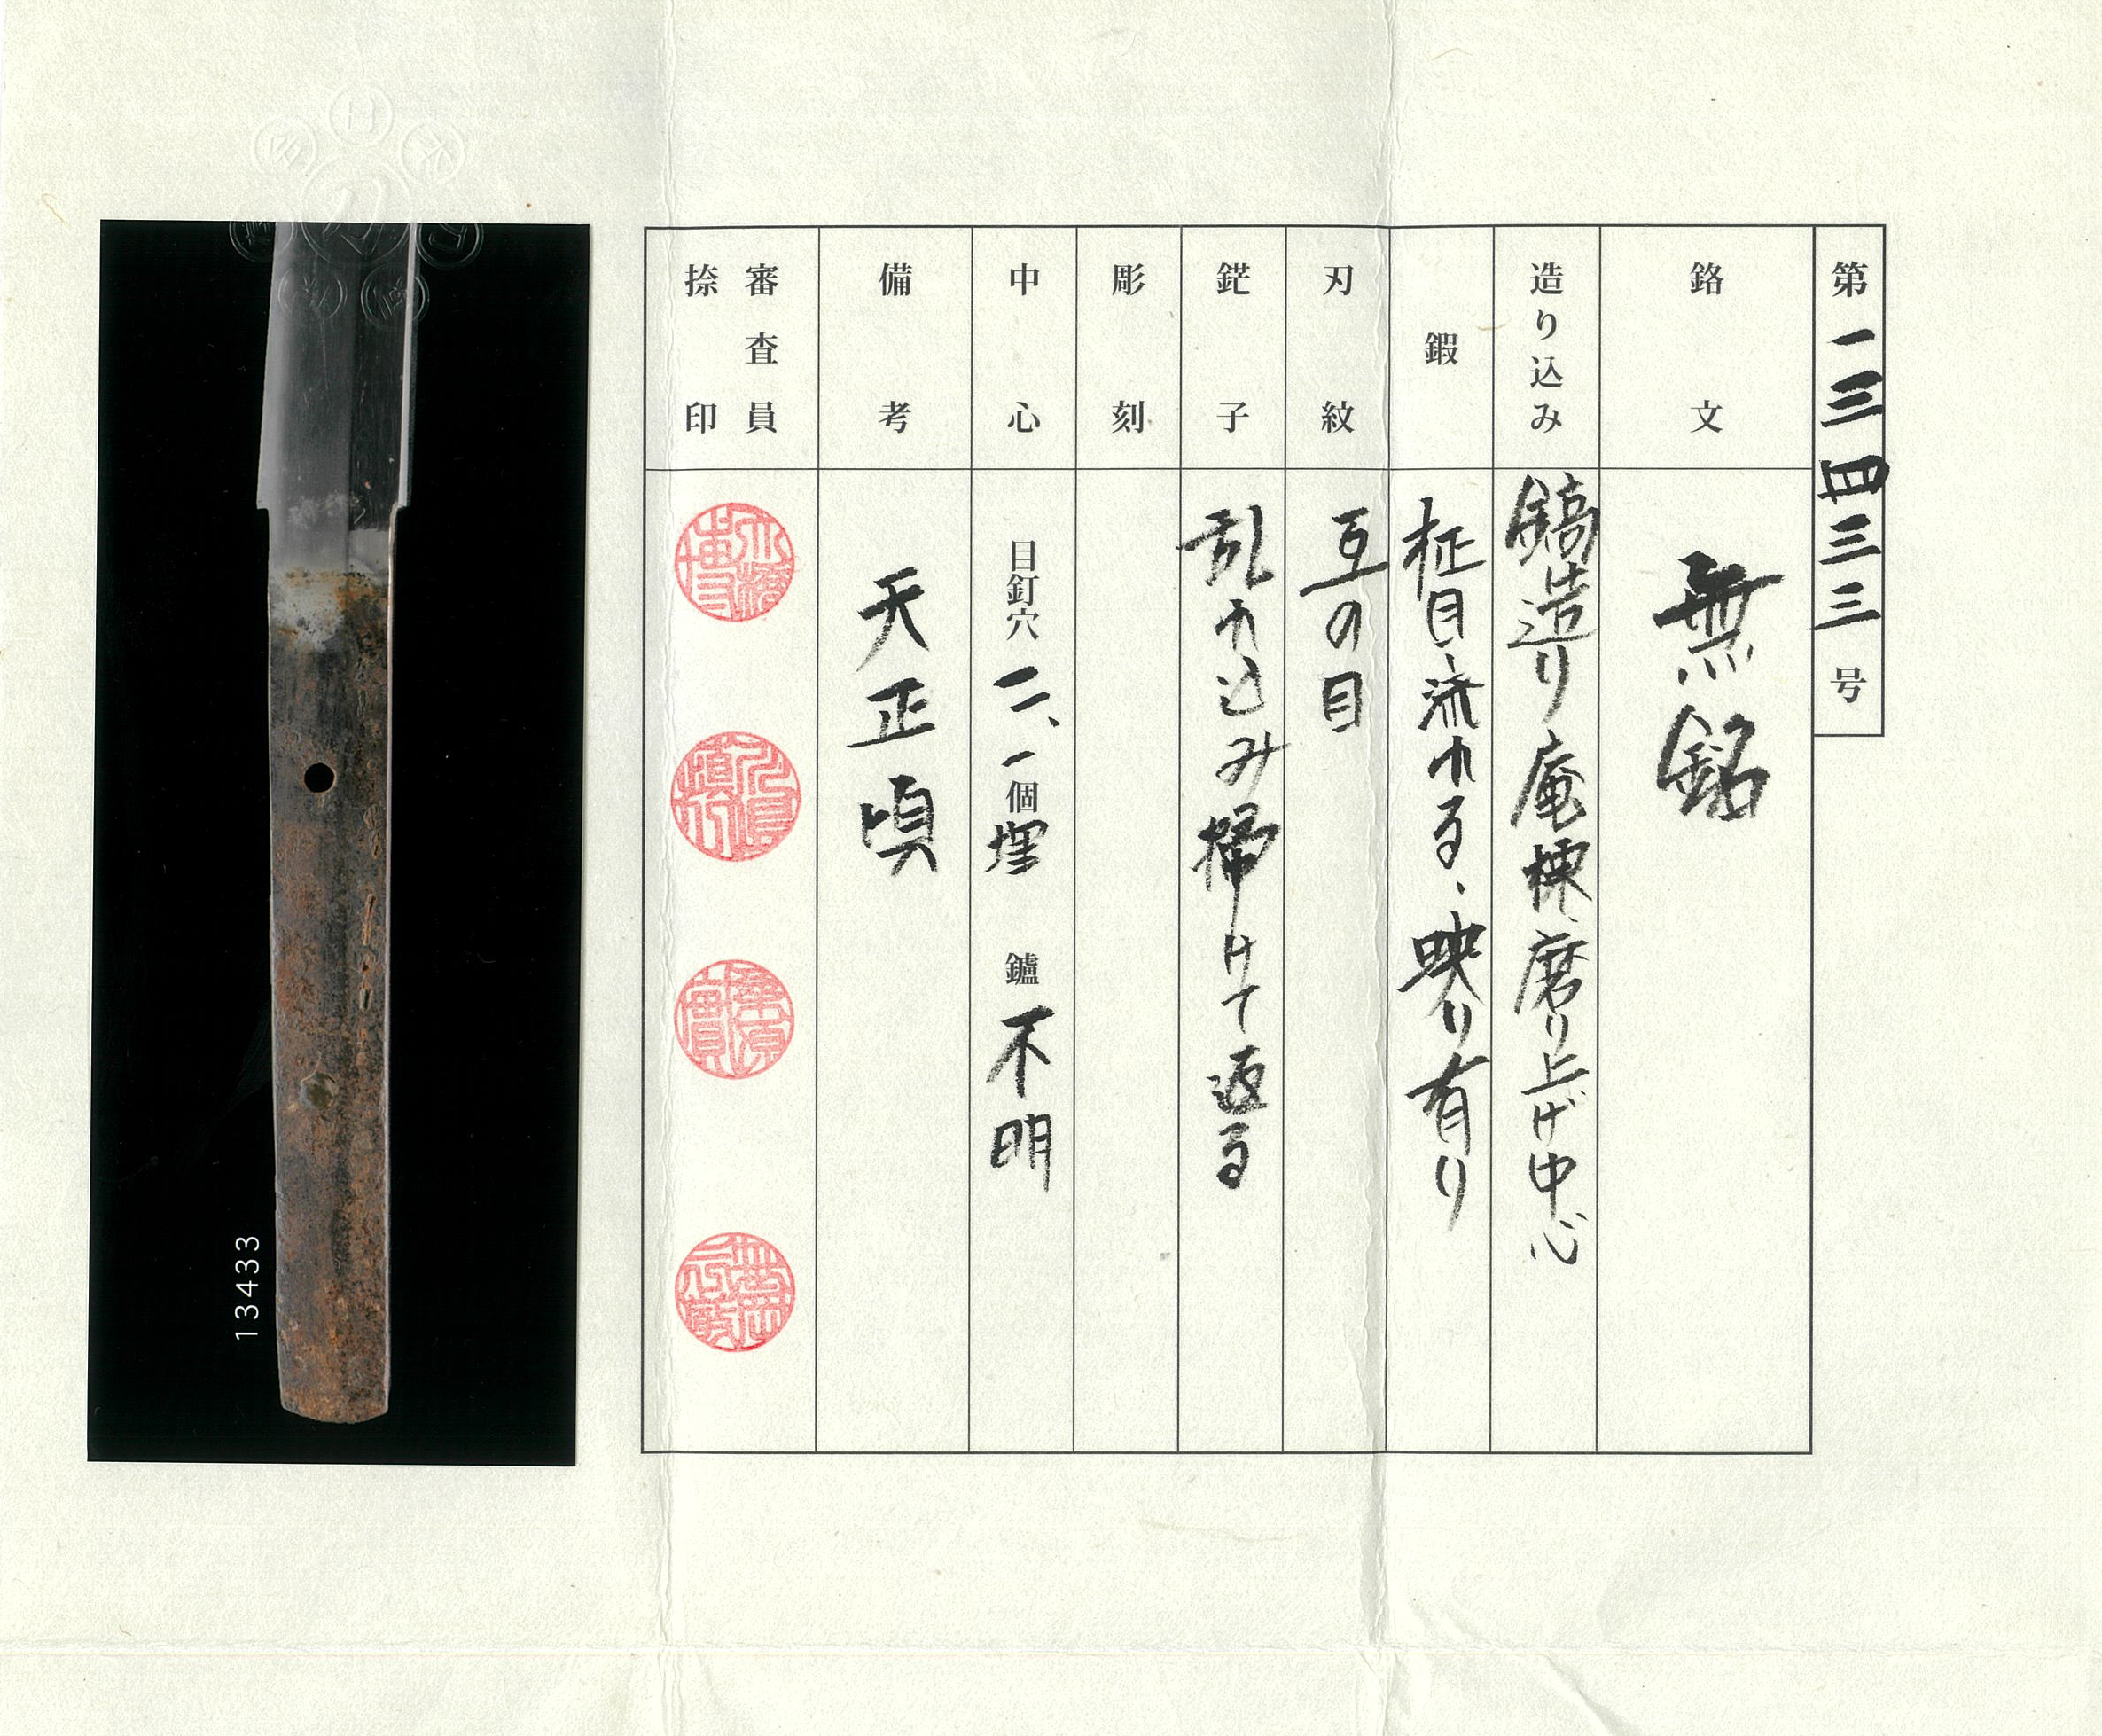 第一三四三三号
銘文
無銘
造り込み
鎬造り庵棟、磨り上げ中心
鍜
柾目流れる、映り有り
刃紋
互の目
鋩子
乱れ込み掃けて返る
彫刻
中心
目釘穴二、一個埋 鑢不明
備考
天正頃
審査員
捺印
13433